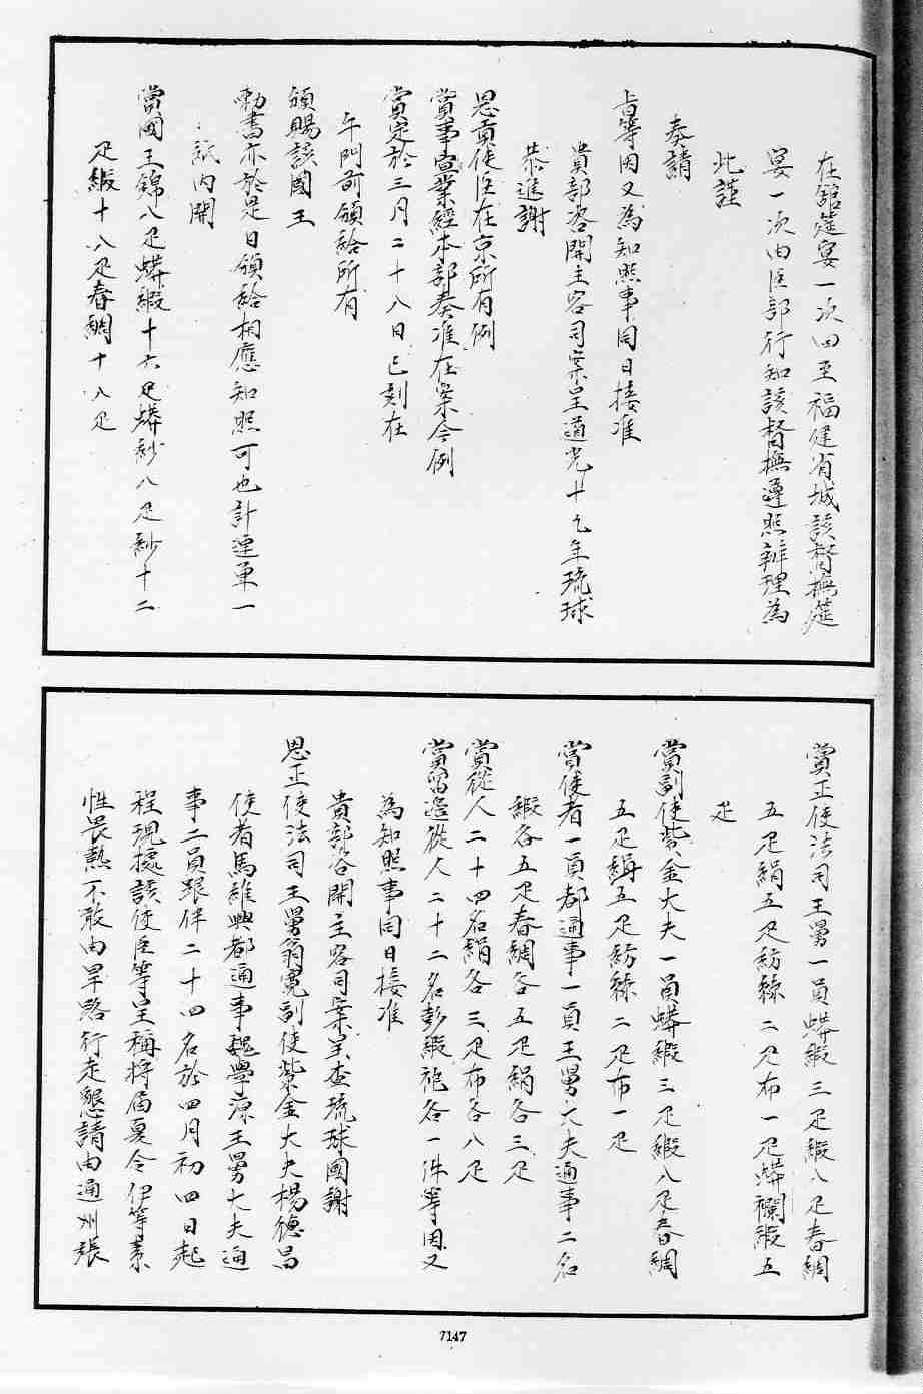 在舘筵宴一次回至福建省城該督撫筵
宴一次由臣部行知該督撫遵照辦理為
此謹
奏請
旨等因又為知照事同日接准
貴部咨開主客司案呈道光十九年琉球
恭進謝
恩貢使臣在京所有例
賞事宜業經本部奏准在案今例
賞定於三月二十八日巳刻在
午門前頒給所有
頒賜該國王
勅書亦於是日頒給相應知照可也計連單一
紙內開
賞國王錦八疋蟒緞十六疋蟒紗八疋紗十二
疋緞十八疋春綢十八疋
賞正使法司王舅一員蟒緞三疋緞八疋春綢
五疋絹五疋紡絲二疋布一疋蟒襴緞五
疋
賞副使紫金大夫一員蟒緞三疋緞八疋春綢
五疋絹五疋紡絲二疋布一疋
賞使者一員都通事一員王舅大夫通事二名
緞各五疋春綢各五疋絹各三疋
賞從人二十四名絹各三疋布各八疋
賞留邊從人二十二名彭緞袍各一件等因又
為知照事同日接准
貴部咨開主客司案呈查琉球國謝
恩正使法司王舅翁寬副使紫金大夫楊德昌
使者馬維興都通事魏學源王舅大夫通
事二員跟伴二十四名於四月初四日起
程現據該使臣等呈稱將屆夏令伊等素
性畏熱不敢由旱路行走懇請由通州張
7147